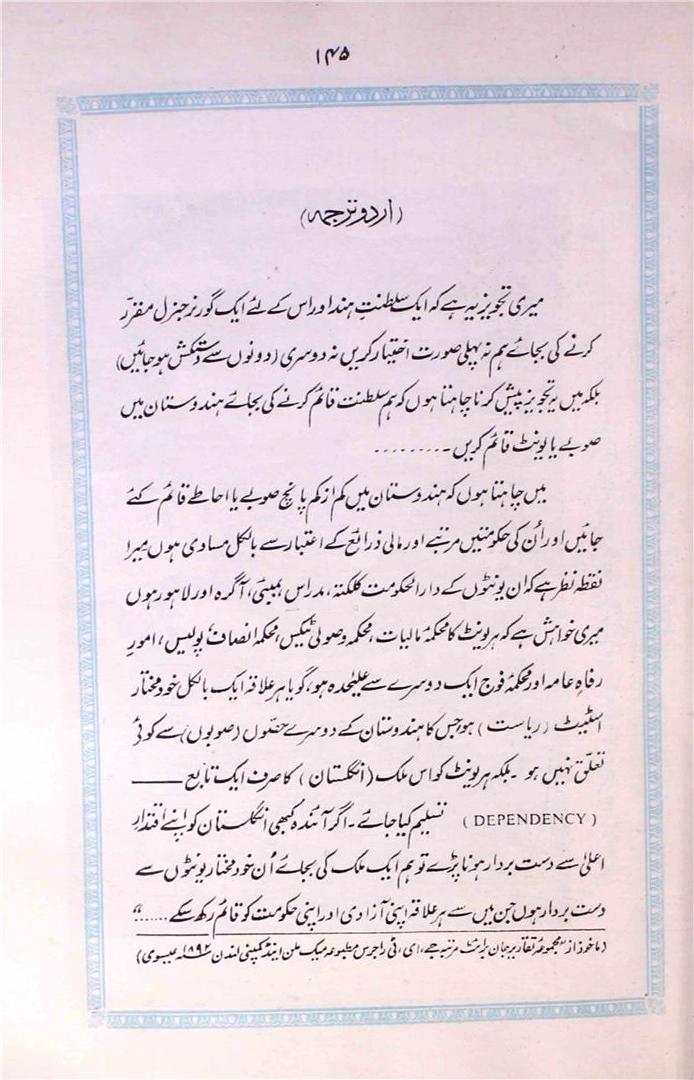 ۱۴۵
(اردو ترجمہ)
میری تجویز یہ ہے کہ ایک سلطنت ہند اور اس کے لئے ایک گورنر جنرل مقرر
کرنے کی بجائے ہم نہ پہلی صورت اختیار کریں نہ دوسری (دونوں سے دستکش ہو جائیں)
بلکہ میں یہ تجویز پیش کرنا چاہتا ہوں کہ ہم سلطنت قائم کرنے کی بجائے ہندوستان میں
صوبے یا یونٹ قائم کریں ۔ ۔۔۔۔۔۔۔۔
میں چاہتا ہوں کہ ہندوستان میں کم از کم پانچ صوبے یا احاطے قائم کئے
جائیں اور اُن کی حکومتیں مرتبے اور مالی ذرائع کے اعتبار سے بالکل مساوی ہوں میرا
نقطہ نظر ہے کہ ان یونٹوں کے دارالحکومت کلکتہ، مدراس، بمبئی، آگرہ اور لاہور ہوں
میری خواہش ہے کہ ہر یونٹ کا محکمۂ مالیات، محکمہ وصولی ٹیکس، محکمہ انصاف، پولیس، امورِ
رفاہِ عامہ اور محکمۂ فوج ایک دوسرے سے علیٰحدہ ہو، گویا ہر علاقہ ایک بالکل خود مختار
اسٹیٹ (ریاست) ہو جس کا ہندوستان کے دوسرے حصّوں (صوبوں) سے کوئی
تعلق نہیں ہو ۔ بلکہ ہر یونٹ کو اس ملک (انگلستان) کا صرف ایک تابع ——
(DEPENDENCY) تسلیم کیا جائے ۔ اگر آئندہ کبھی انگلستان کو اپنے اقتدارِ
اعلیٰ سے دست بردار ہونا پڑے تو ہم ایک ملک کی بجائے اُن خود مختار یونٹوں سے
دست بردار ہوں جن میں سے ہر علاقہ اپنی آزادی اور اپنی حکومت کو قائم رکھ سکے ......"
(ماخوذ از "مجموعۂ تقاریر جان برائٹ مرتبہ جے، ای، ٹی راجرس مطبوعہ میک ملن اینڈ کمپنی لندن ۱۸۹۲ عیسوی)